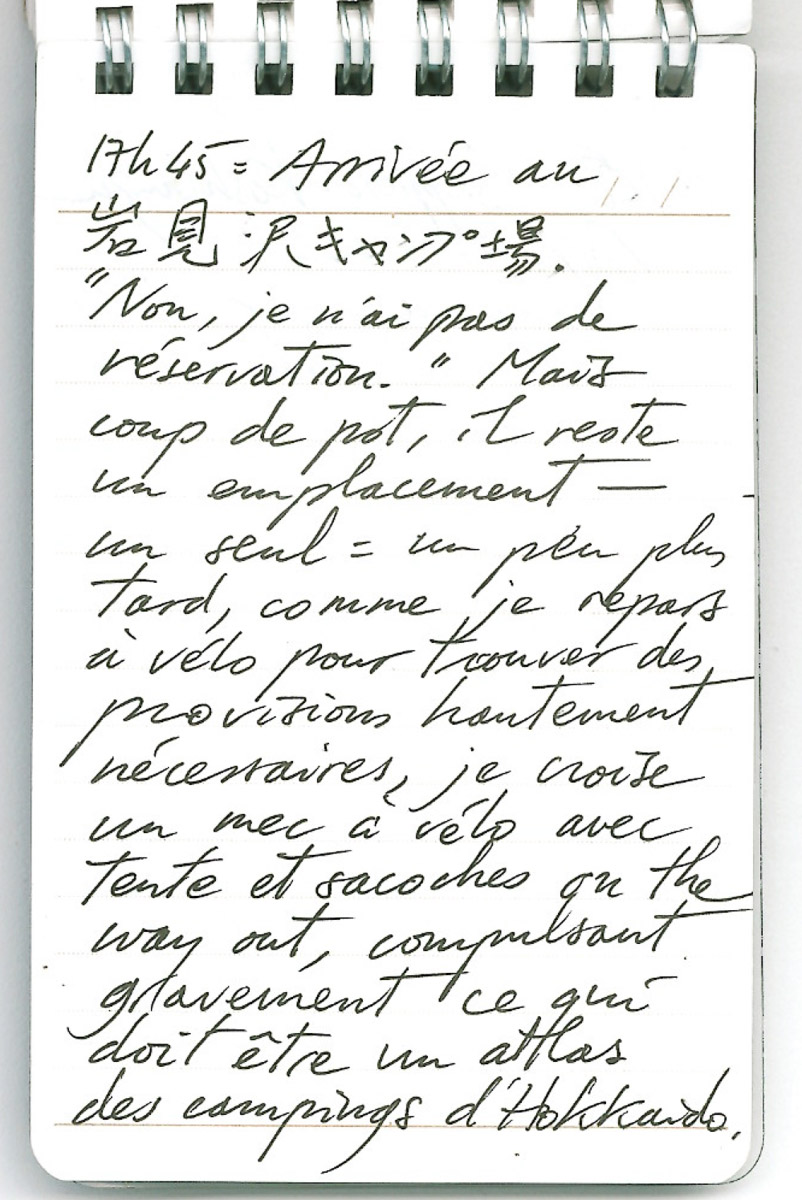 17h45 = Arrivée au
岩見沢キャンプ場.
"Non, je n'ai pas de
réservation." Mais
coup de pot, il reste
un emplacement —
un seul = un peu plus
tard, comme je repars
à vélo pour trouver des
provisions hautement
nécessaires, je croise
un mec à vélo avec
tente et sacoches on the
way out, compulsant
gravement ce qui
doit être un atlas
des campings d'Hokkaido.